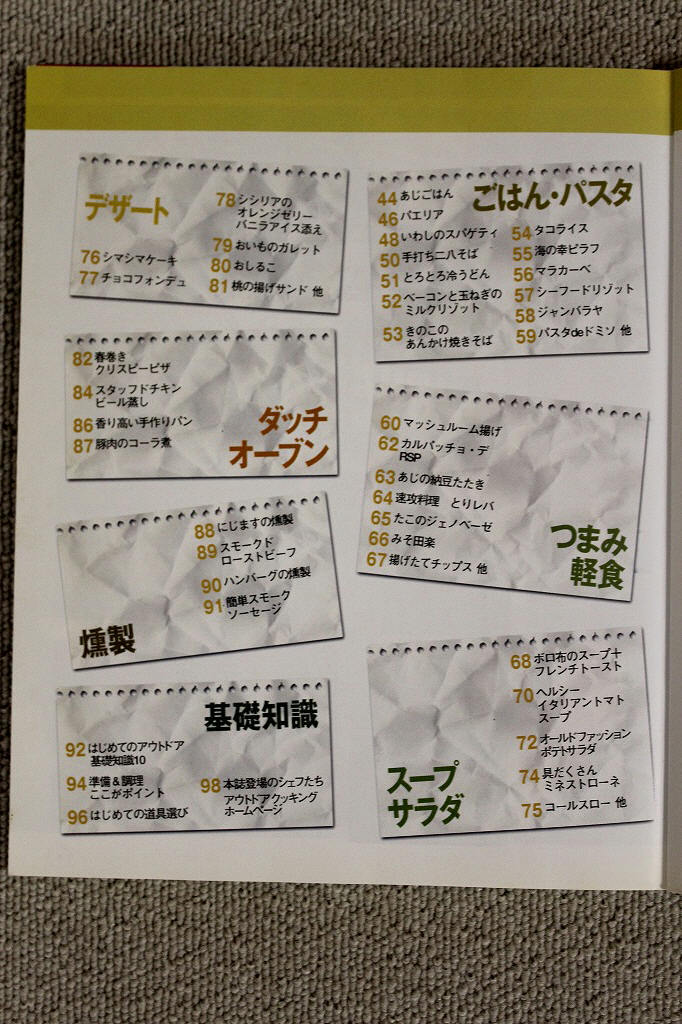 デザート
76 シマシマケーキ
77 チョコフォンデュ
78 シシリアの
オレンジゼリー
バニラアイス添え
79 おいものガレット
80 おしるこ
81 桃の揚げサンド 他
ごはん・パスタ
44 あじごはん
46 パエリア
48 いわしのスパゲティ
50 手打ち二八そば
51 とろとろ冷うどん
52 ベーコンと玉ねぎの
ミルクリゾット
53 きのこの
あんかけ焼きそば
54 タコライス
55 海の幸ピラフ
56 マラカーペ
57 シーフードリゾット
58 ジャンバラヤ
59 パスタdeドミソ 他
82 春巻き
クリスピーピザ
84 スタッフドチキン
ビール蒸し
86 香り高い手作りパン
87 豚肉のコーラ煮
ダッチ
オーブン
60 マッシュルーム揚げ
62 カルパッチョ・デ
RSP
63 あじの納豆たたき
64 速攻料理 とりレバ
65 たこのジェノベーゼ
66 みそ田楽
67 揚げたてチップス 他
つまみ
軽食
88 にじますの燻製
89 スモークド
ローストビーフ
90 ハンバーグの燻製
91 簡単スモーク
ソーセージ
燻製
68 ボロ布のスープ＋
フレンチトースト
70 ヘルシー
イタリアントマト
スープ
72 オールドファッション
ポテトサラダ
74 具だくさん
ミネストローネ
75 コールスロー 他
スープ
サラダ
基礎知識
92 はじめてのアウトドア
基礎知識10
94 準備＆調理
ここがポイント
96 はじめての道具選び
98 本誌登場のシェフたち
アウトドアクッキング
ホームページ